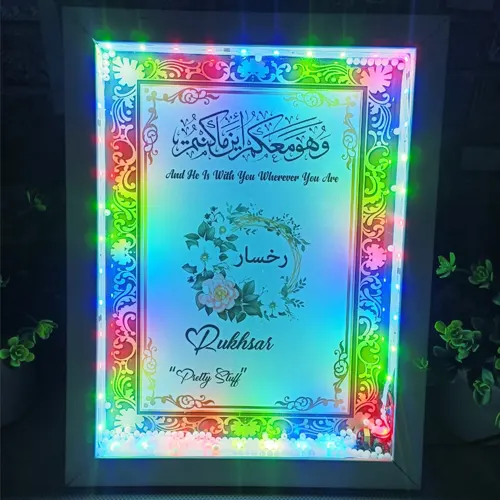 وَهُوَ مَعَكُمْ أَيْنَ مَا كُنْتُمْ
And He Is With You Wherever You Are
رخسار
Rukhsar
"Pretty Stuff"